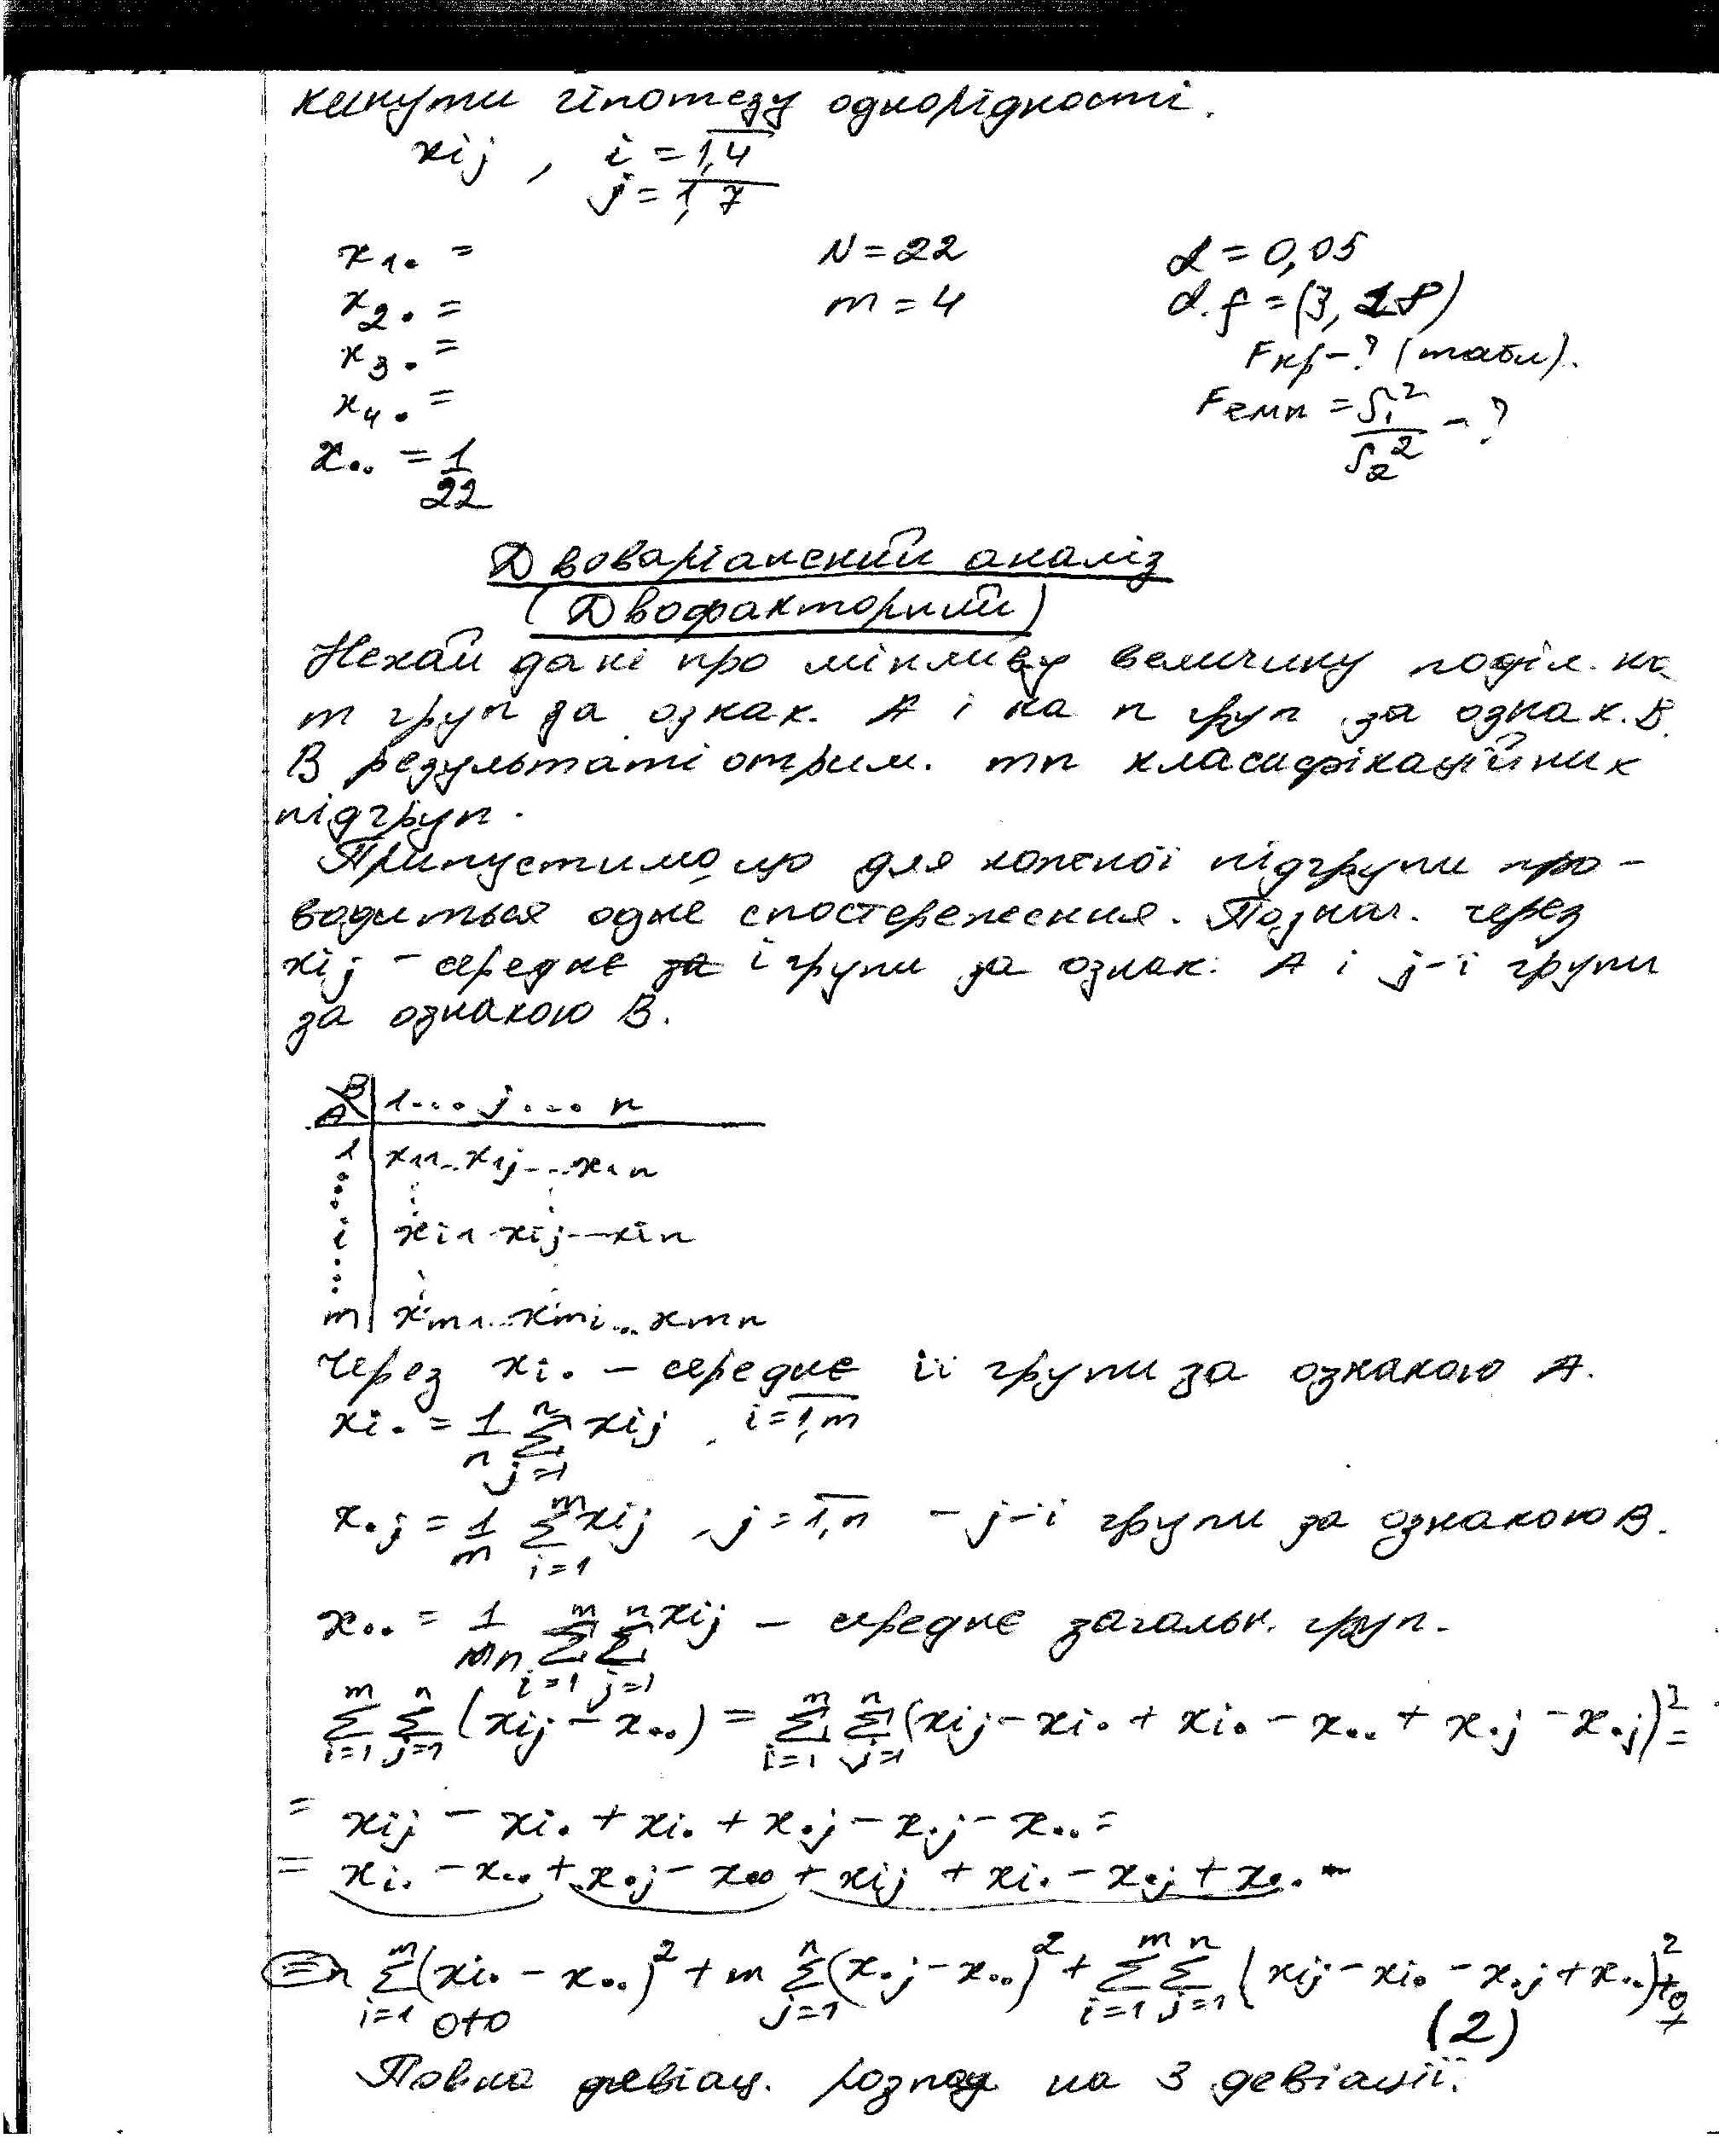 кинути гіпотезу однорідності.
xij , i = 1,4
j = 1,7
x1. = N = 22 α = 0,05
x2. = m = 4 d.f = (3, 18)
x3. = Fкр - ? (табл).
x4. = Fемп = S1² / S2² - ?
x.. = 1/22
Двоваріанский аналіз
(Двофакторний)
Нехай дані про мінливу величину поділ. на
m груп за ознак. A і на n груп за ознак. B.
В результаті отрим. mn класифікаційних
підгруп.
Припустимо, що для кожної підгрупи про-
водиться одне спостереження. Познач. через
xij - середнє і групи за ознак. A і j-ї групи
за ознакою B.
B
A 1... j ... n
1 x11...x1j...x1n
i xi1...xij...xin
m xm1...xmi...xmn
Через xi. - середнє ії групи за ознакою A.
xi. = 1/n Σ(j=1..n) xij , i = 1,m
x.j = 1/m Σ(i=1..m) xij , j = 1,n - j-ї групи за ознакою B.
x.. = 1/mn Σ(i=1..m) Σ(j=1..n) xij - середнє загальн. груп.
Σ(i=1..m) Σ(j=1..n) (xij - x..) = Σ(i=1..m) Σ(j=1..n) (xij - xi. + xi. - x.. + x.j - x.j)² =
= xij - xi. + xi. + x.j - x.j - x.. =
= xi. - x.. + x.j - x.. + xij + xi. - x.j + x.. -
= n Σ(i=1..m) (xi. - x..)² + m Σ(j=1..n) (x.j - x..)² + Σ(i=1..m) Σ(j=1..n) (xij - xi. - x.j + x..)² + 0 +
0+0 (2)
Повна девіац. розпад на 3 девіації.